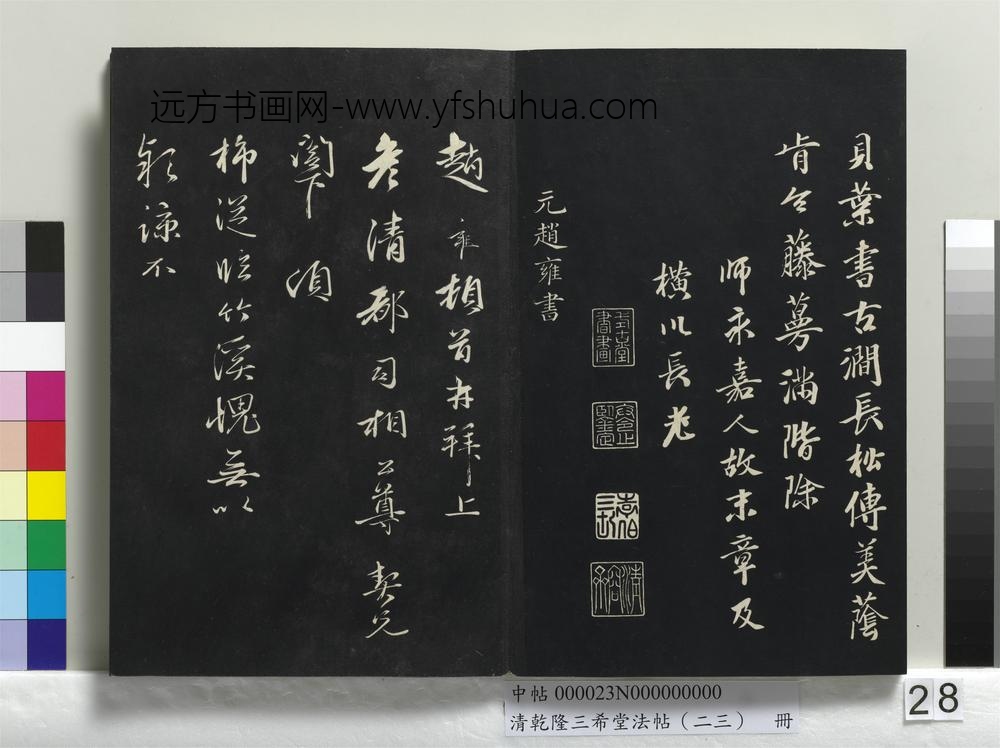 远方书画网-www.yfshuhua.com
貝葉書古澗長松傳美蔭
肯令藤蔓滿階除
師永嘉人故末章及
橫川長老
元趙雍書
趙雍頓首再拜上
彦清郡司相公尊契兄
閣下頃
杭從臨竹溪愧無以
不
中帖 000023N000000000
清乾隆三希堂法帖（二三） 冊
28